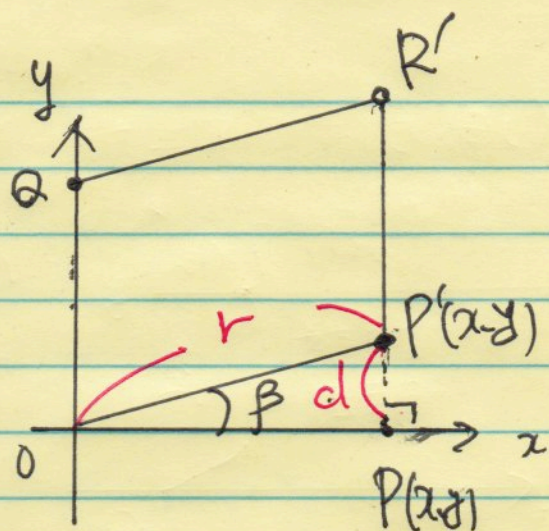 R'
y
Q
r
P'(x-y)
β
d
0
x
P(x,y)